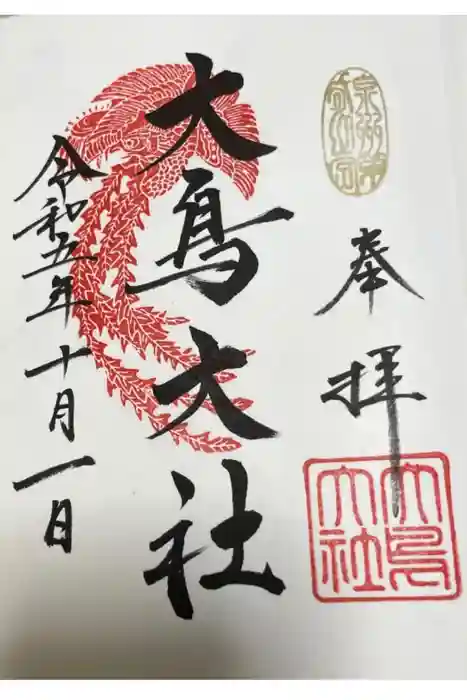 奉拝
大鳥
大社
大鳥大社
令和五年十月一日